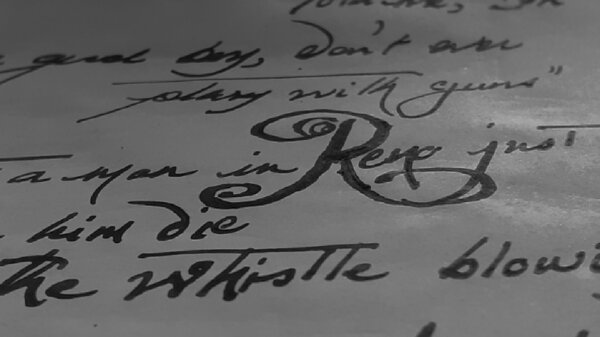 good boy, don't ever
play with guns"
a man in Reno just
him die
the whistle